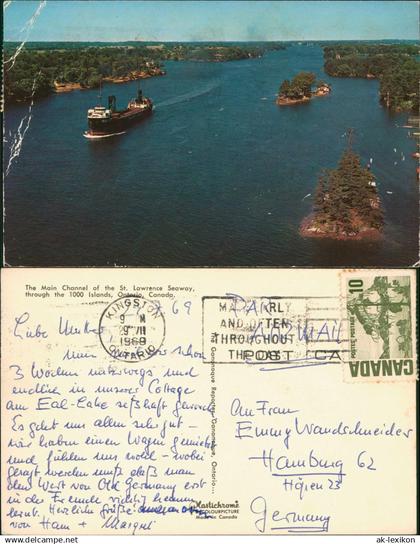 The Main Channel of the St. Lawrence Seaway,
through the 1000 Islands, Ontario, Canada.
69
KINGSTON
9 M
29 VII
1969
ONTARIO
MAIL EARLY
AND OFTEN
THROUGHOUT
THE DAY
PAR AIR MAIL
POST CA
10
CANADA
Liebe
nun schon
3 Wochen unterwegs und
endlich in unserer Cottage
am Eal-Lake seßhaft geworden
Es geht uns allen sehr gut -
wir haben einen Wagen gemietet
und fühlen uns wohl - wobei
gesagt werden muß daß man
den Wert von Old Germany erst
in der Fremde richtig kennen
lernt. Herzliche Grüße
von Hans + Margret
The Gananoque Reporter, Gananoque, Ontario
Plastichrome
COLOURPICTURE
Canada
An Frau
Emmy Wandschneider
Hamburg 62
23
Germany
© www.ak-ansichtskarten.de
ak-lexikon